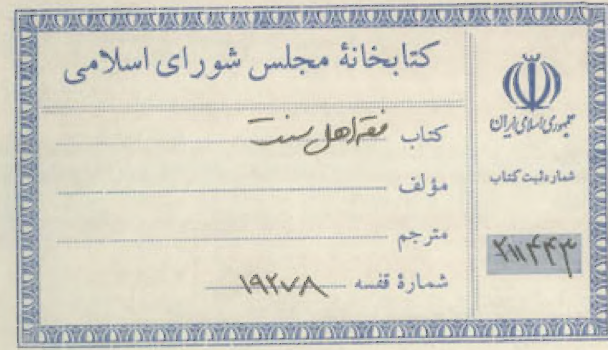 کتابخانهٔ مجلس شورای اسلامی
کتاب فقه اهل سنت
مؤلف
مترجم
شمارهٔ قفسه ۱۹۲۷۸
جمهوری اسلامی ایران
شماره ثبت کتاب
۲۱۱۴۴۳